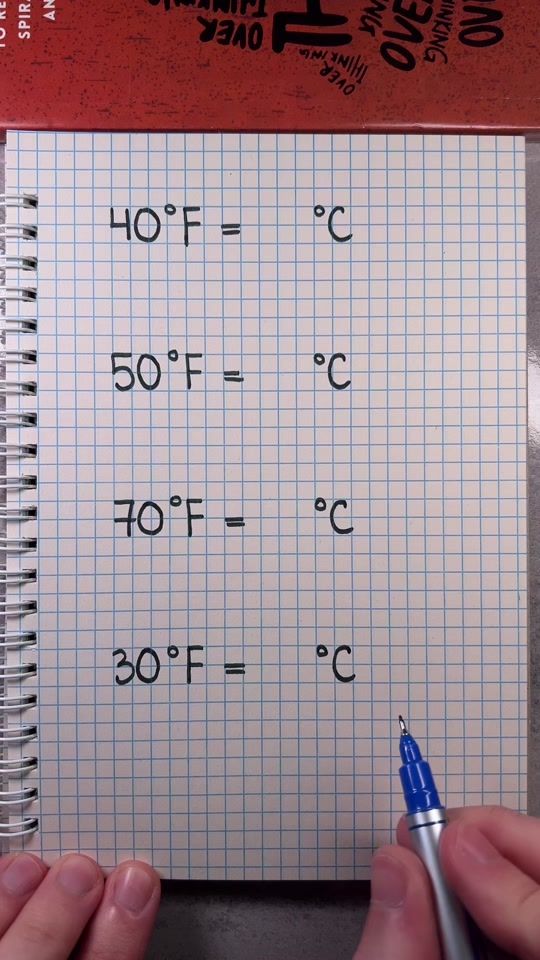 TO RE
SPIRA
AN
OVER
THINKING
TH
OVER
THINKING
OVER
THINKING
OV
40°F = °C
50°F = °C
70°F = °C
30°F = °C